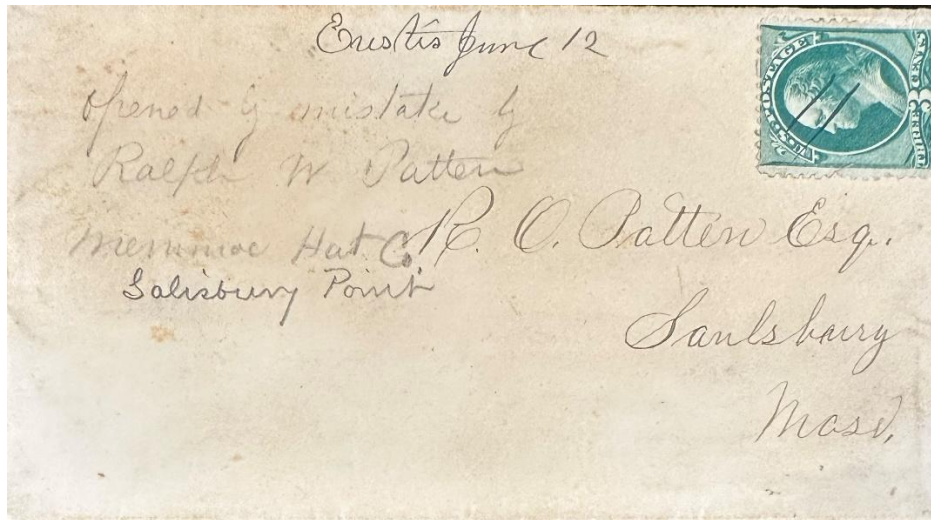 Eustis June 12
opened by mistake by
Ralph W Patten
Merrimac Hat Co.
Salisbury Point
R. O. Patten Esq.
Saulsbury
Mass.
U.S. POSTAGE
THREE CENTS